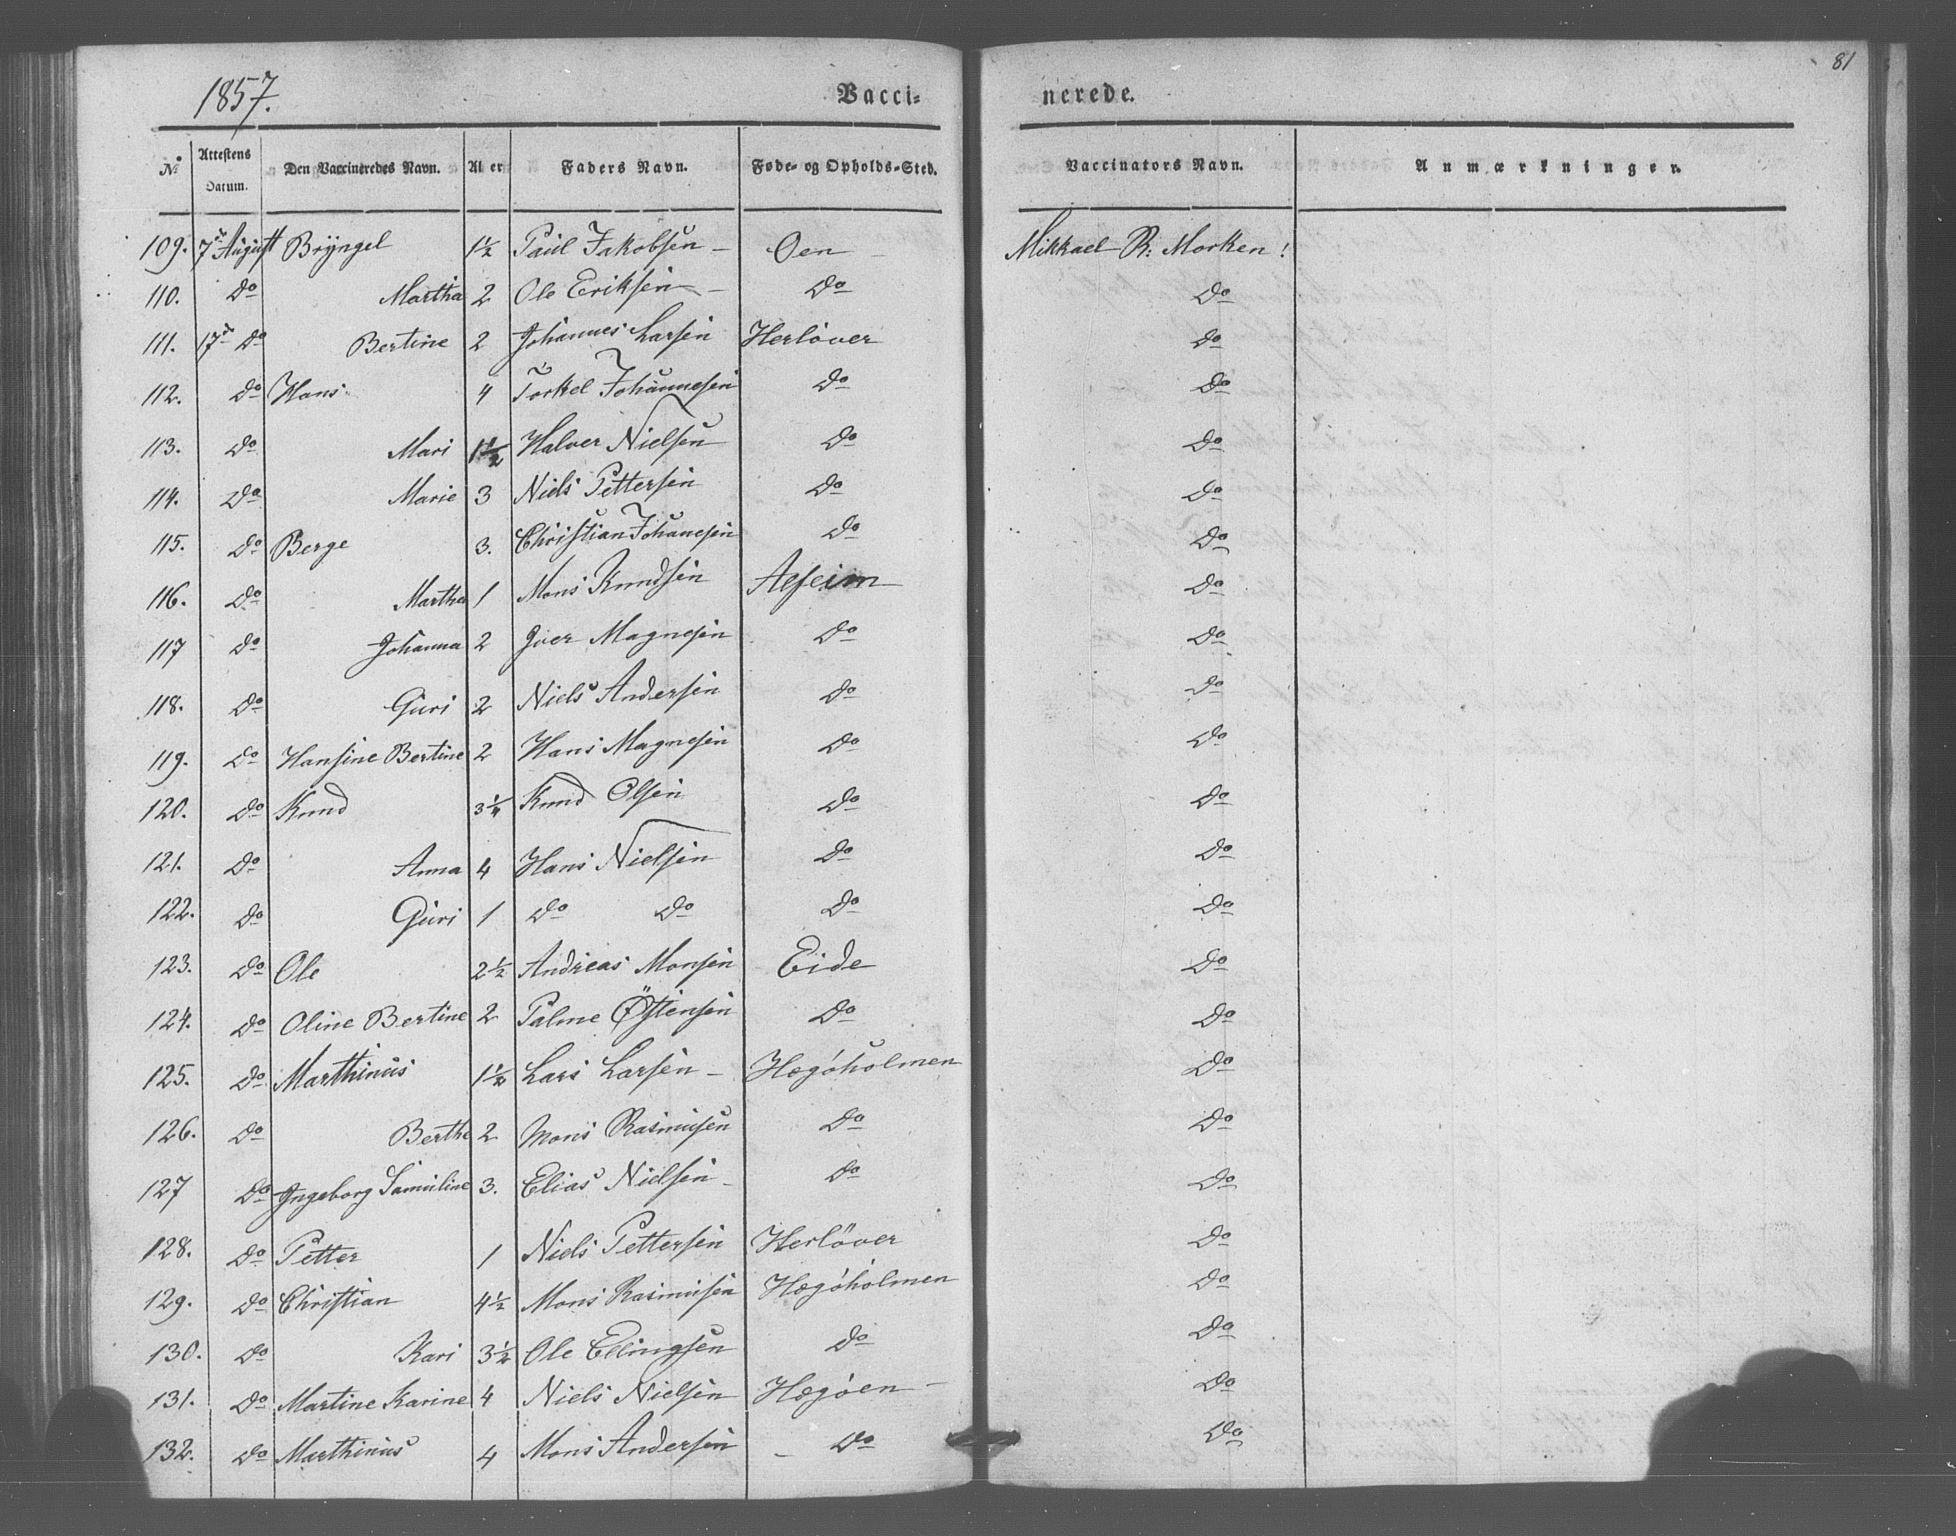 1857. Vacci- nerede. 81
No Attestens Datum. Den Vaccineredes Navn. Alder Faders Navn. Føde- og Opholds-Sted. Vaccinators Navn. Anmærkninger.
109. 7de August Bryngel 1½ Paul Jakobsen - Oen - Mikkael R: Morken!
110. Do Martha 2 Ole Eriksen - Do Do
111. 17de Do Bertine 2 Johannes Larsen Herløver Do
112. Do Hans 4 Torkel Johannesen Do Do
113. Do Mari 1½ Halver Nielsen Do Do
114. Do Marie 3 Niels Pettersen Do Do
115. Do Berge 3. Christian Johanesen Do Do
116. Do Martha 1 Mons Knudsen Do
117 Do Johanna 2 Magnesen Do Do
118. Do Guri 2 Niels Andersen Do Do
119. Do Hansine Bertine 2 Hans Magnesen Do Do
120. Do Knud 3¼ Knud Olsen Do Do
121. Do Anna 4 Hans Nielsen Do Do
122. Do Guri 1 Do Do Do Do
123. Do Ole 2½ Andreas Monsen Eide Do
124. Do Oline Bertine 2 Palme Östensen Do Do
125. Do Marthinus 1½ Lars Larsen - Hægøholmen Do
126. Do Berthe 2 Mons Rasmusen Do Do
127 Do Ingeborg Samuline 3. Elias Nielsen - Do Do
128. Do Petter 1 Niels Pettersen Herløver Do
129. Do Christian 4½ Mons Rasmusen Hægøholmen Do
130. Do Kari 3½ Ole Ellingsen Do Do
131. Do Martine Karine 4 Niels Nielsen Hægøen - Do
132. Do Marthinus 4 Mons Andersen - Do Do